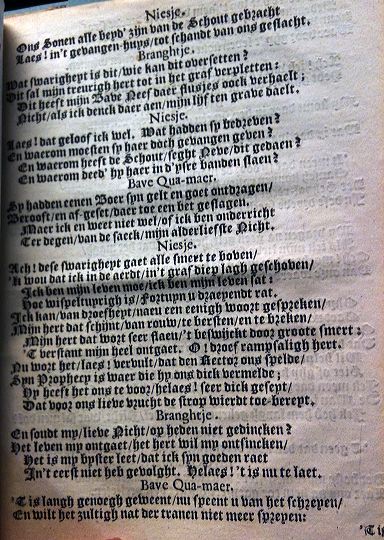 Niesje.
Ons Sonen alle beyd' zijn van de Schout gebracht
Laes! in't gevangen-huys/tot schandt van ons geslacht.
Branghtje.
Wat swarighept is dit/wie kan dit oversetten?
Dit sal mijn treurigh hert tot in het graf verpletten:
Dit heeft mijn Bave Neef daer flusjes oock verhaelt;
Nicht/als ick denck daer aen/mijn lijf ten grave daelt.
Niesje.
Laes! dat geloof ick wel. Wat hadden sy bedreven?
En waerom moesten sy haer doch gevangen geven?
En waerom heeft de Schout/seght Neve/dit gedaen?
En waerom deed' hy haer in d'ysre banden slaen?
Bave Qua-maer.
Sy hadden eenen Boer syn gelt en goet ontdragen/
Berooft/en af-geset/daer toe een bet geslagen.
Maer ick en weet niet wel/of ick ben onderricht
Ter degen/van de saeck/mijn alderliefste Nicht.
Niesje.
Ach! dese swarighept gaet alle smert te boven/
'k wou dat ick in de aerdt/in't graf diep lagh geschoven/
Ick ben mijn leven moe/ick ben mijn leven sat:
Hoe wispeltuyrigh is/Fortuyn u draeyendt rat.
Ick kan/van droefhept/naeu een eenigh woort gespreken/
Mijn hert dat schijnt/van rouw/te bersten/en te breken/
Mijn hert dat wort seer flaeu/'t beswijckt door groote smert:
'T verstant mijn heel ontgaet. O! droef rampsaligh hert.
Nu wort het/laes! vervult/dat de Rector ons spelde/
Syn Prophecy is waer die hy ons dick vermelde;
Hy heeft het ons te voor/helaes! seer dick gesept/
Dat voor ons lieve vrucht de strop wierdt toe-berept.
Branghtje.
En soudt my/lieve Nicht/op heden niet gedincken?
Het leven my ontgaet/het hert wil my ontsincken/
Het is my byster leet/dat ick syn goeden raet
In't eerst niet heb gevolght. Helaes! 't is nu te laet.
Bave Qua-maer.
'T is langh genoegh geweent/nu speent u van het schreyen/
En wilt het zultigh nat der tranen niet meer spreyen:
'T is